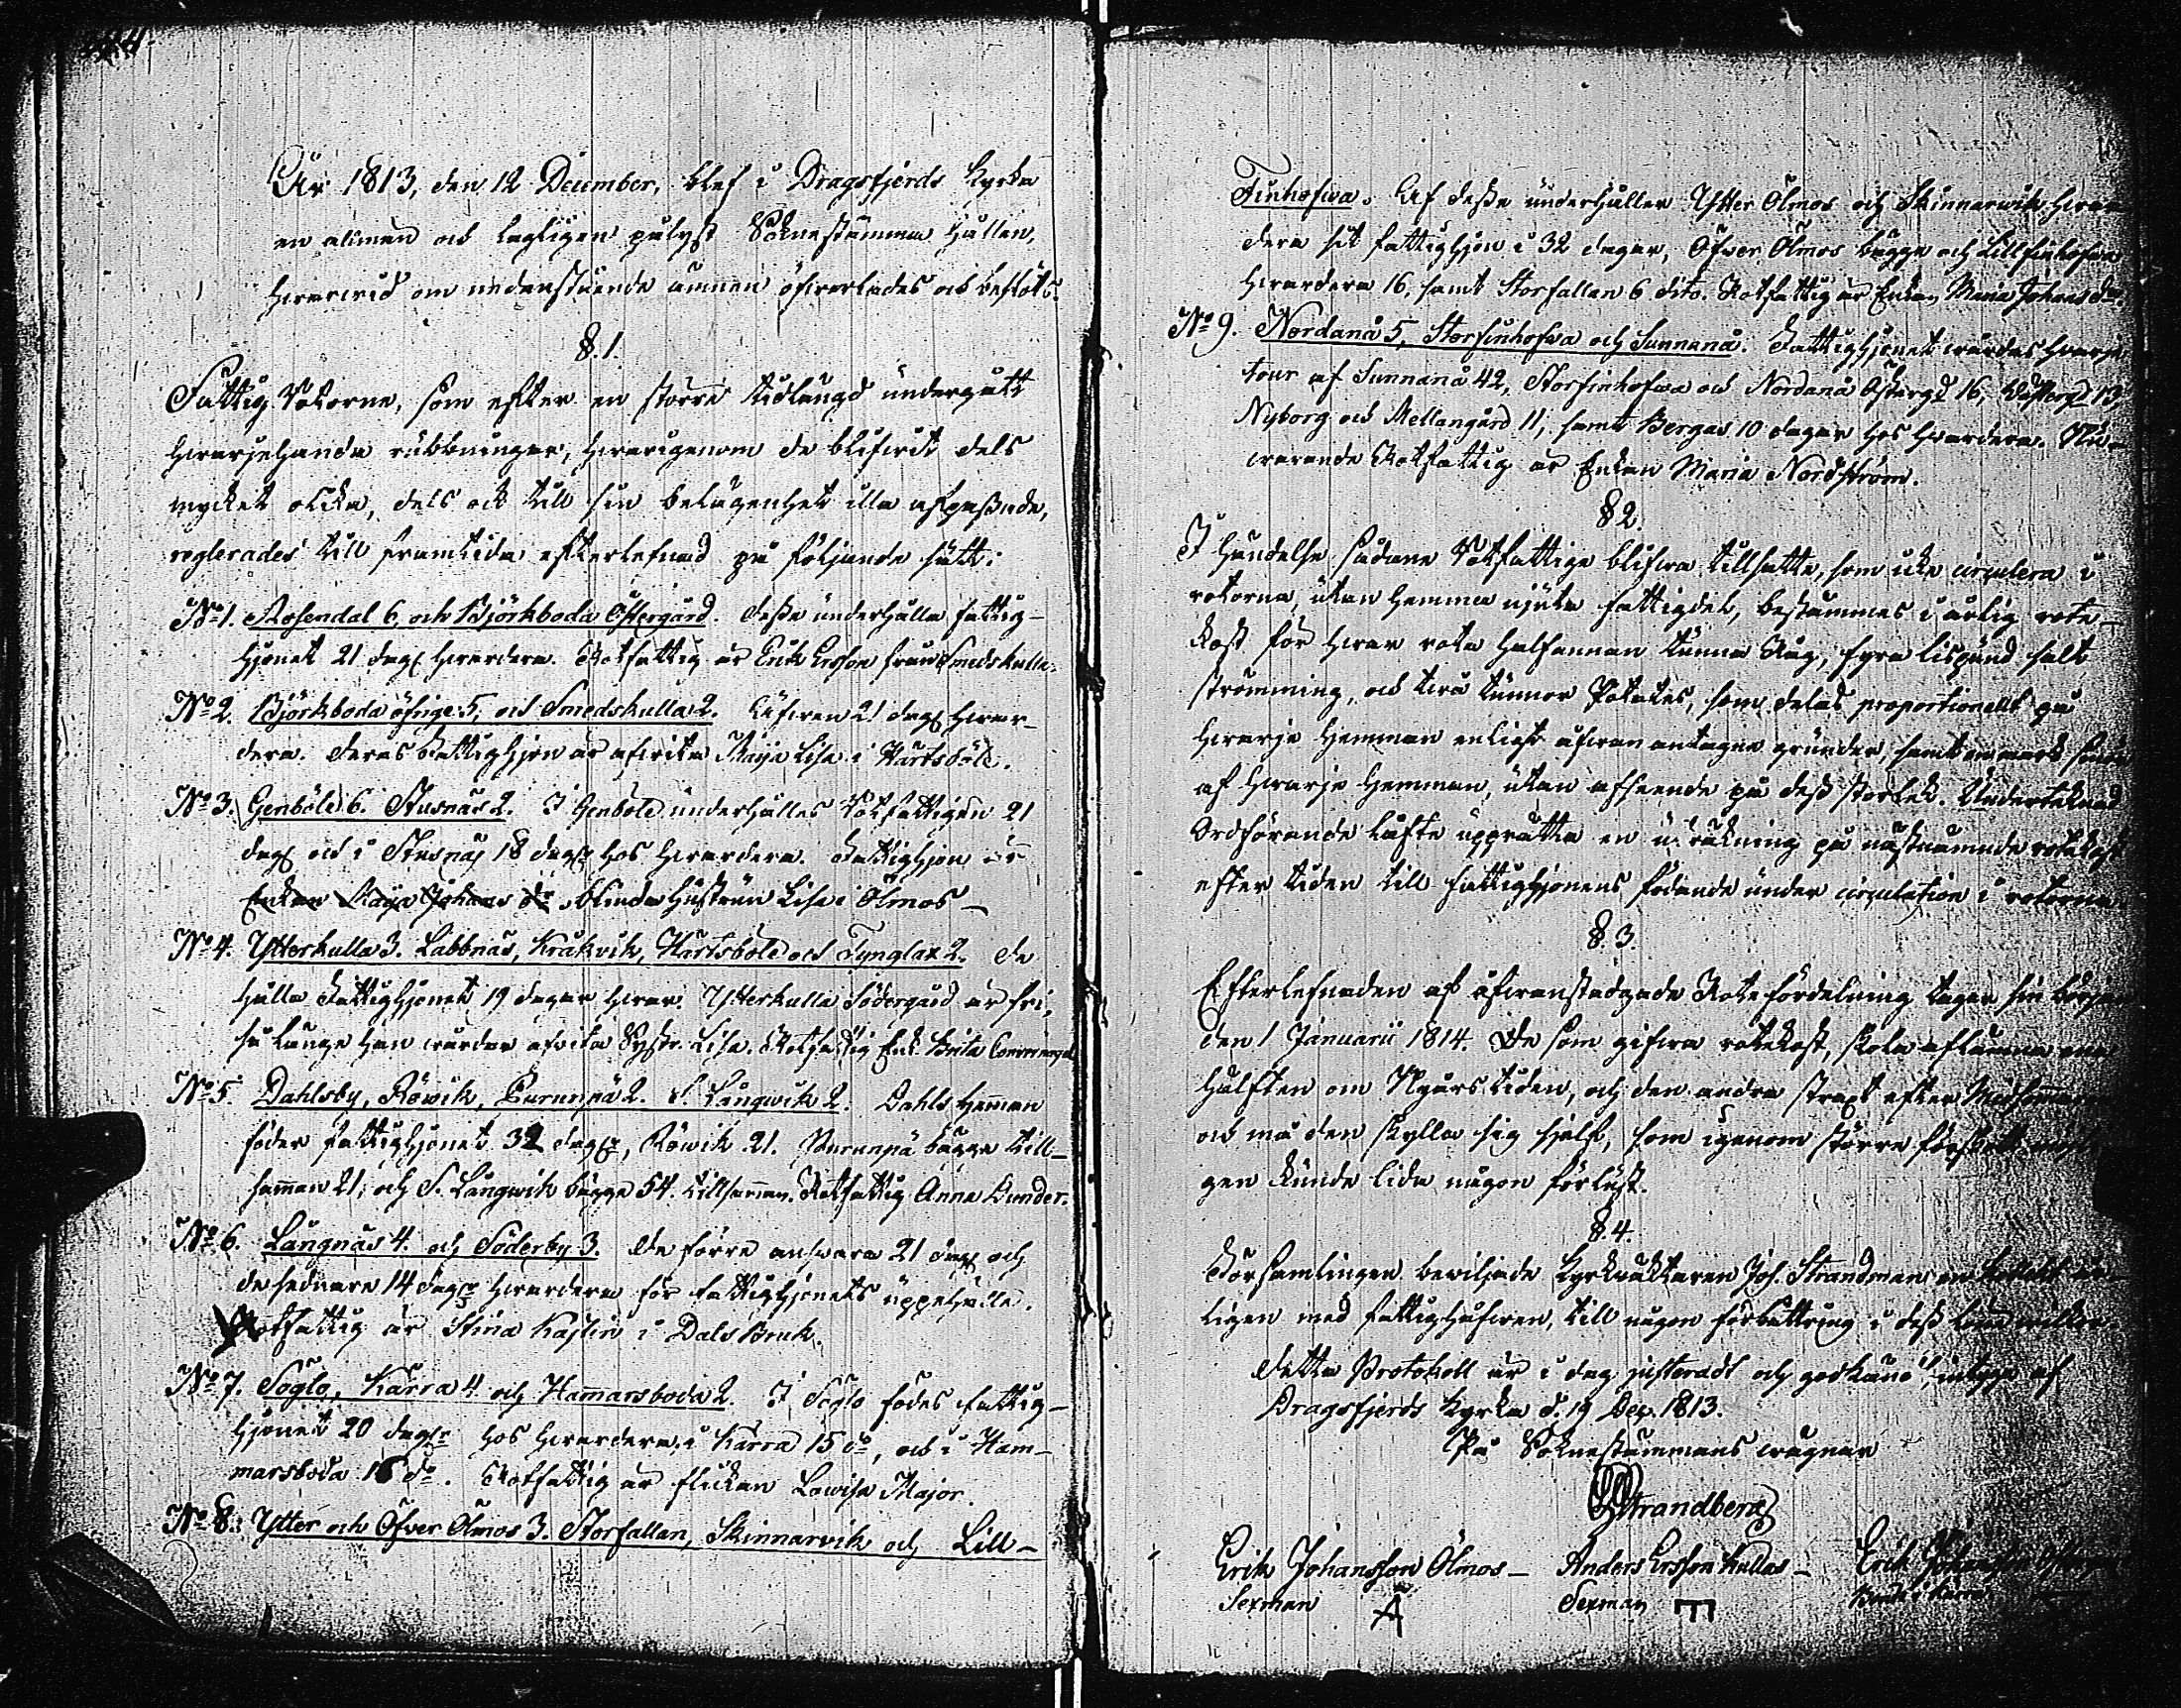 År 1813, den 12 December, blef i Dragsfjerds Kyrka
en allmän och lagligen pålyst Soknestämma hållen,
hvarvid om nedanstående ämnen öfverlades och beslöts.
§. 1.
Fattig Rotorne, som efter en större tidlängd undergått
hvarjehanda rubbningar, hvarigenom de blifvit dels
mycket olika, dels ock till sin belägenhet illa afpassade,
reglerades till framtida efterlefnad på följande sätt:
No 1. Rosendal 6 och Björkboda Östergård. Desse underhålla fattig-
hjonet 21 dagr hvardera. Rotfattig är Erik Ersson från Smedskulla.
No 2. Björkboda öfrige 5, och Smedskulla 2. Äfven 21 dagr hvar-
dera. Deras Fattighjon är afvita Maja Lisa i Hartsböle.
No 3. Genböle 6. Stusnäs 2. I Genböle underhålles Rotfattigen 21
dagr och i Stusnäs 18 dagr hos hvardera. Fattighjon är
Enkan Maja Johans dr blinda hustrun Lisa i Ölmos -
No 4. Ytterkulla 3. Labbnäs, Kråkvik, Hartsböle och Tynglax 2. De
hålla Fattighjonet 19 dagar hvar. Ytterkulla Södergård är fri,
så länge han vårdar afvita Systr. Lisa. Rotfattig Enk. Brita
No 5. Dahlsby, Röwik, Purunpä 2. S. Långwik 2. Dahls Heman
föder fattighjonet 32 dagr, Röwik 21. Purunpä bägge till-
samman 21; och S. Långwik bägge 54. tillsamman. Rotfattig Anna Dunder.
No 6. Långnäs 4. och Söderby 3. De förre ansvara 21 dagr och
de sednare 14 dagr hvardera för fattighjonets uppehälle.
Rotfattig är Stina Kajlin i Dals Bruk.
No 7. Söglo, Kärra 4. och Hammarsboda 2. I Söglo födes fattig-
hjonet 20 dagr hos hvardera, i Kärra 15 do, och i Ham-
marsboda 16 do. Rotfattig är flickan Lovisa Major.
No 8. Ytter och Öfver Ölmos 3. Storfallan, Skinnarvik och Lill-
Finhofva. Af desse underhåller Ytter Ölmos och Skinnarwik hvar-
dera sit fattighjon i 32 dagar, Öfver Ölmos bägge och Lillfinhofva
hvardera 16, samt Storfallan 6 dito. Rotfattig är Enkan Maria Johansdr.
No 9. Nordanå 5, Storfinhofva och Sunnanå. Fattighjonet vårdas hvarje
tour af Sunnanå 42, Storfinhofva och Nordanå Östergd 16, Westergd 13
Nyborg och Mellangård 11, samt Bergas 10 dagar hos hvardera. Nu-
varande Rotfattig är Enkan Maria Nordström.
§ 2.
I händelse sådane Rotfattige blifva tillsatte, som icke circulera i
rotorna, utan hemma njuta fattigdel, bestämmes i årlig rote-
kost för hvar rota halfannan tunna Råg, fyra lispund salt
strömming, och två tunnor Potates, som delas proportionellt på
hvarje Hemman enligt ofvan antagne grunder, samt en mark
af hvarje Hemman, utan afseende på dess storlek. Undertecknad
Ordförande lofte upprätta en uträkning på nästnämnde rotekost
efter tiden till fattighjonens födande under circulation i rotorna.
§. 3.
Efterlefnaden af ofvanstadgade Rotefördelning tager sin början
den 1 Januarii 1814. De som gifva rotekost, skola aflämna ena
hälften om Nyårs tiden, och den andra straxt efter Midsommaren
och må den skylla sig sjelf, som igenom större förskott
gen kunde lida någon förlust.
§. 4.
Församlingen beviljade Kyrkväktaren Joh. Strandman en kollekt
ligen med fattighåfven, till någon förbättring i dess
Detta Protokoll är i dag justeradt och godkändt, intyga af
Dragsfjerds Kyrka d. 19 Dec. 1813.
På Soknestämmans vägnar
Strandberg
Erik Johansson Ölmos - Anders Ersson Kullas - Erik
Sexman A Sexman E